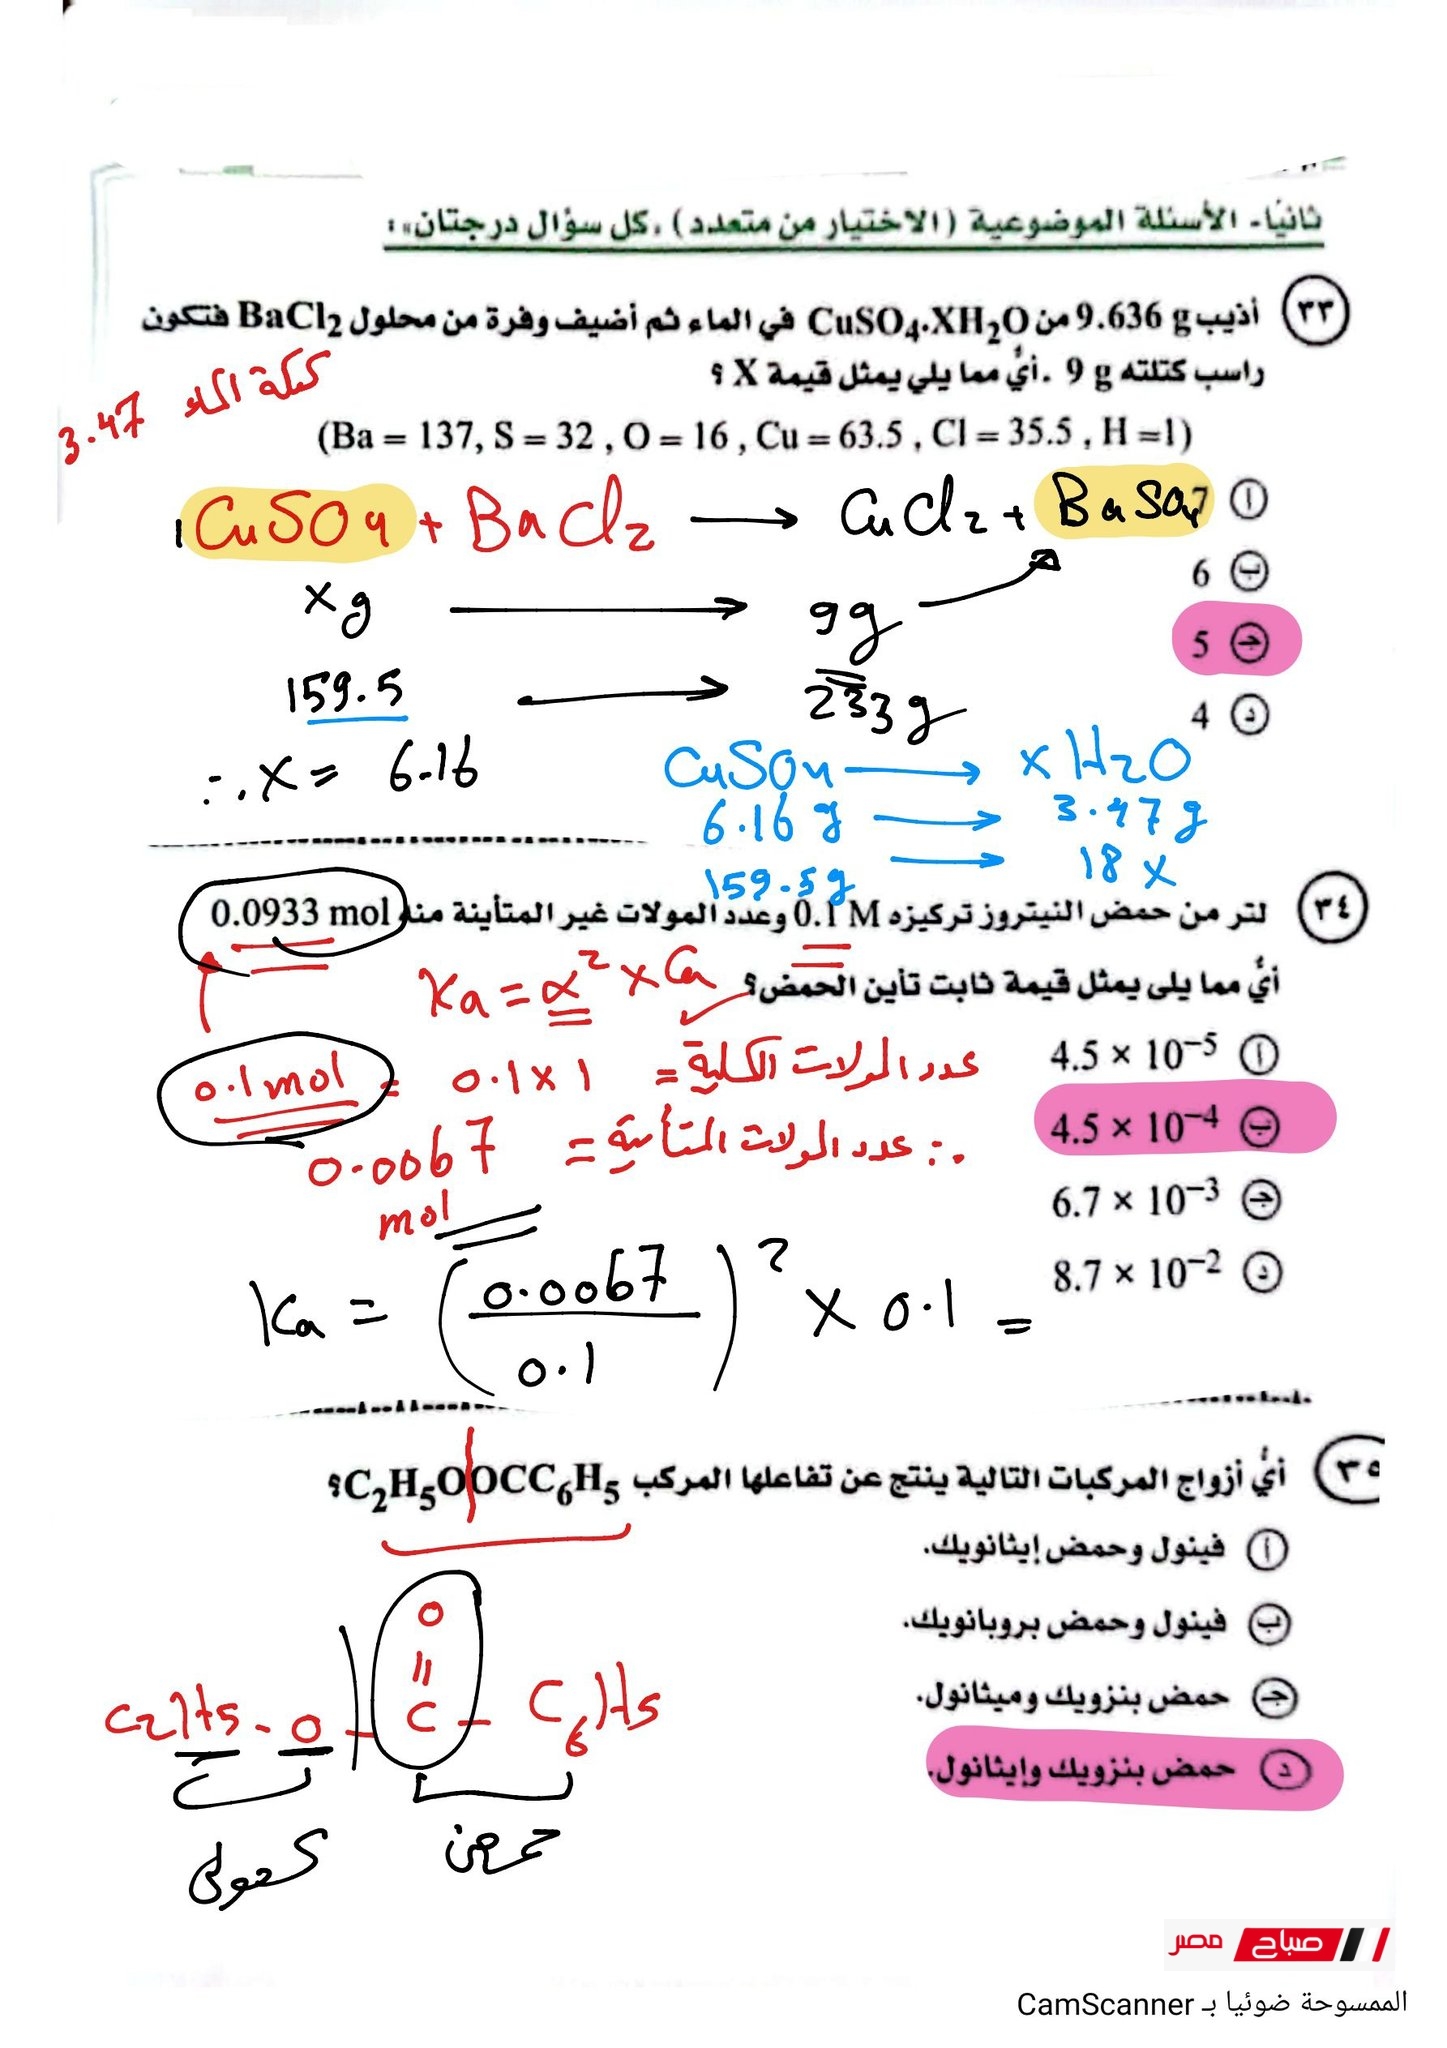 ثانيًا- الأسئلة الموضوعية (الاختيار من متعدد) ،كل سؤال درجتان»:
٣٣ أذيب 9.636 g من CuSO₄.XH₂O في الماء ثم أضيف وفرة من محلول BaCl₂ فتكون
راسب كتلته 9 g . أيُّ مما يلي يمثل قيمة X ؟
كتلة الماء 3.47
(Ba = 137, S = 32 , O = 16 , Cu = 63.5 , Cl = 35.5 , H =1)
أ 7
1 CuSO4 + BaCl2 → CuCl2 + BaSO4
ب 6
x g → 9g
ج 5
159.5 → 233 g
د 4
∴ x = 6.16
CuSO4 → x H2O
6.16 g → 3.47 g
159.5 g → 18 x
٣٤ لتر من حمض النيتروز تركيزه 0.1 M وعدد المولات غير المتأينة منه 0.0933 mol
أيُّ مما يلى يمثل قيمة ثابت تأين الحمض؟
Ka = α² × Ca
أ 4.5 × 10⁻⁵
عدد المولات الكلية = 0.1 × 1 = 0.1 mol
ب 4.5 × 10⁻⁴
∴ عدد المولات المتأينة = 0.0067 mol
ج 6.7 × 10⁻³
د 8.7 × 10⁻²
Ka = (0.0067 / 0.1)² × 0.1 =
٣٥ أيُّ أزواج المركبات التالية ينتج عن تفاعلها المركب C₂H₅OOCC₆H₅؟
أ فينول وحمض إيثانويك.
ب فينول وحمض بروبانويك.
ج حمض بنزويك وميثانول.
د حمض بنزويك وإيثانول.
O
=
C2H5 - O - C - C6H5
كحولى
حمض
صباح مصر
الممسوحة ضوئيا بـ CamScanner